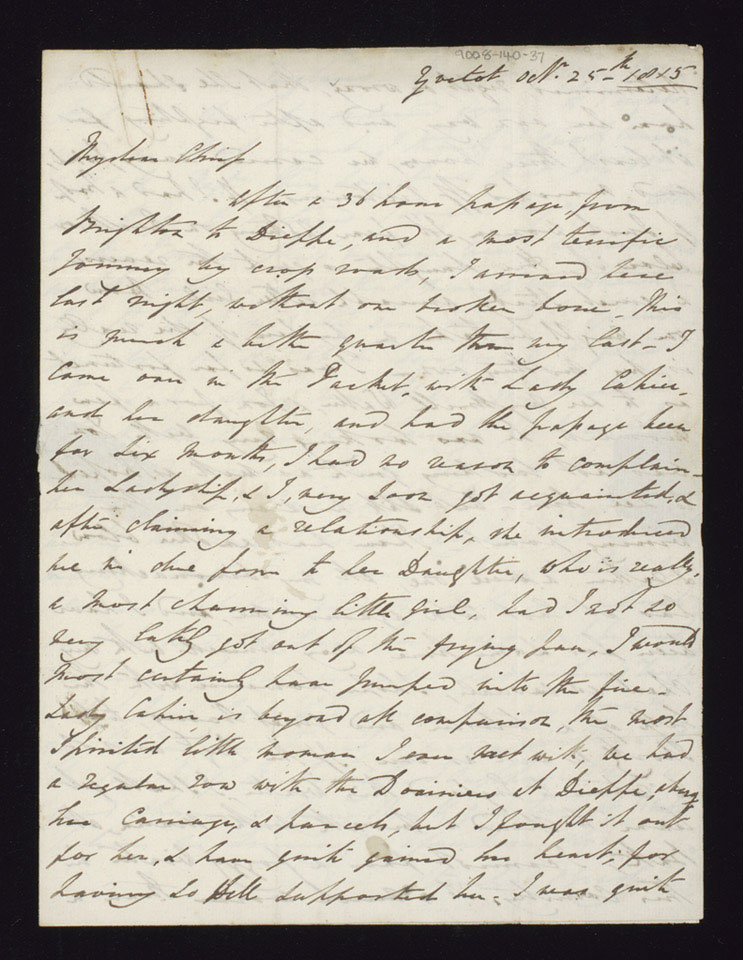 9008-140-37
Yvetot Octr. 25th 1815
My dear Chief
After a 36 hours passage from
Brighton to Dieppe, and a most terrific
Journey by cross roads, I arrived here
last night, without one broken bone. This
is much a better quarter than my last - I
came over in the Packet, with Lady
and her daughter, and had the passage been
for six months, I had no reason to complain -
her Ladyship, & I, very soon got acquainted, &
after claiming a relationship, she introduced
me in due form to her Daughter, who is really,
a most charming little girl, had I not so
very lately got out of the frying pan, I would
most certainly have jumped into the fire -
Lady is beyond all comparison, the most
spirited little woman I ever met with, we had
a regular row with the Douaniers at Dieppe, about
her Carriage, & parcels, but I fought it out
for her, & have quite gained her heart, for
having so well supported her. I was quite